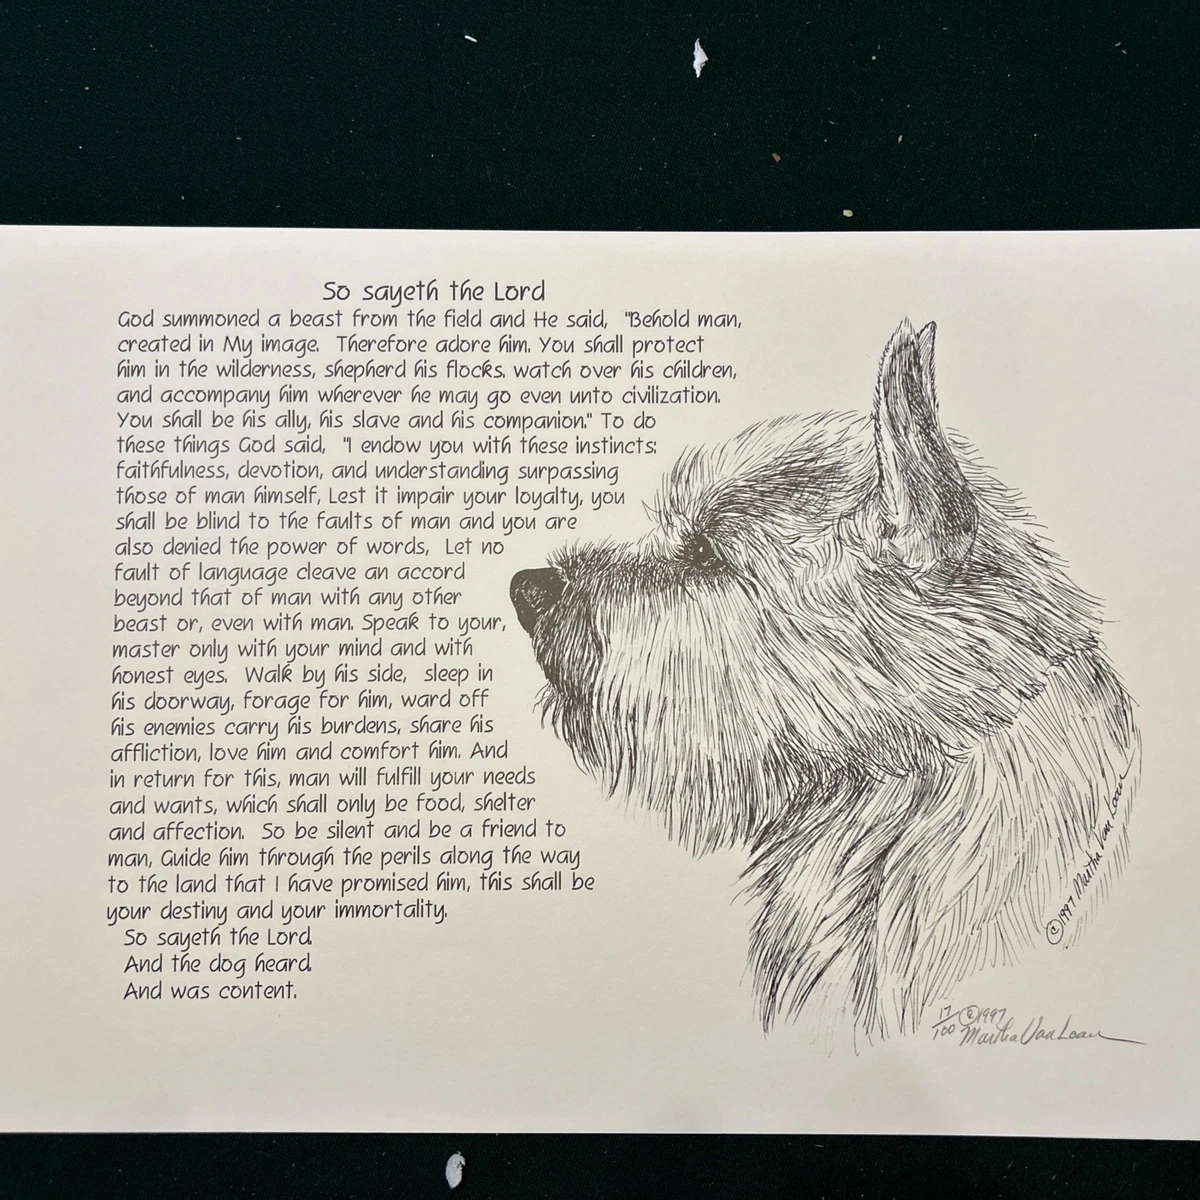 So sayeth the Lord
God summoned a beast from the field and He said, "Behold man,
created in My image. Therefore adore him. You shall protect
him in the wilderness, shepherd his flocks. watch over his children,
and accompany him wherever he may go even unto civilization.
You shall be his ally, his slave and his companion." To do
these things God said, "I endow you with these instincts:
faithfulness, devotion, and understanding surpassing
those of man himself, Lest it impair your loyalty, you
shall be blind to the faults of man and you are
also denied the power of words, Let no
fault of language cleave an accord
beyond that of man with any other
beast or, even with man. Speak to your,
master only with your mind and with
honest eyes. Walk by his side, sleep in
his doorway, forage for him, ward off
his enemies carry his burdens, share his
affliction, love him and comfort him. And
in return for this, man will fulfill your needs
and wants, which shall only be food, shelter
and affection. So be silent and be a friend to
man, Guide him through the perils along the way
to the land that I have promised him, this shall be
your destiny and your immortality.
So sayeth the Lord.
And the dog heard.
And was content.
©1997 Martha Van Loan
17/100 ©1997
Martha Van Loan